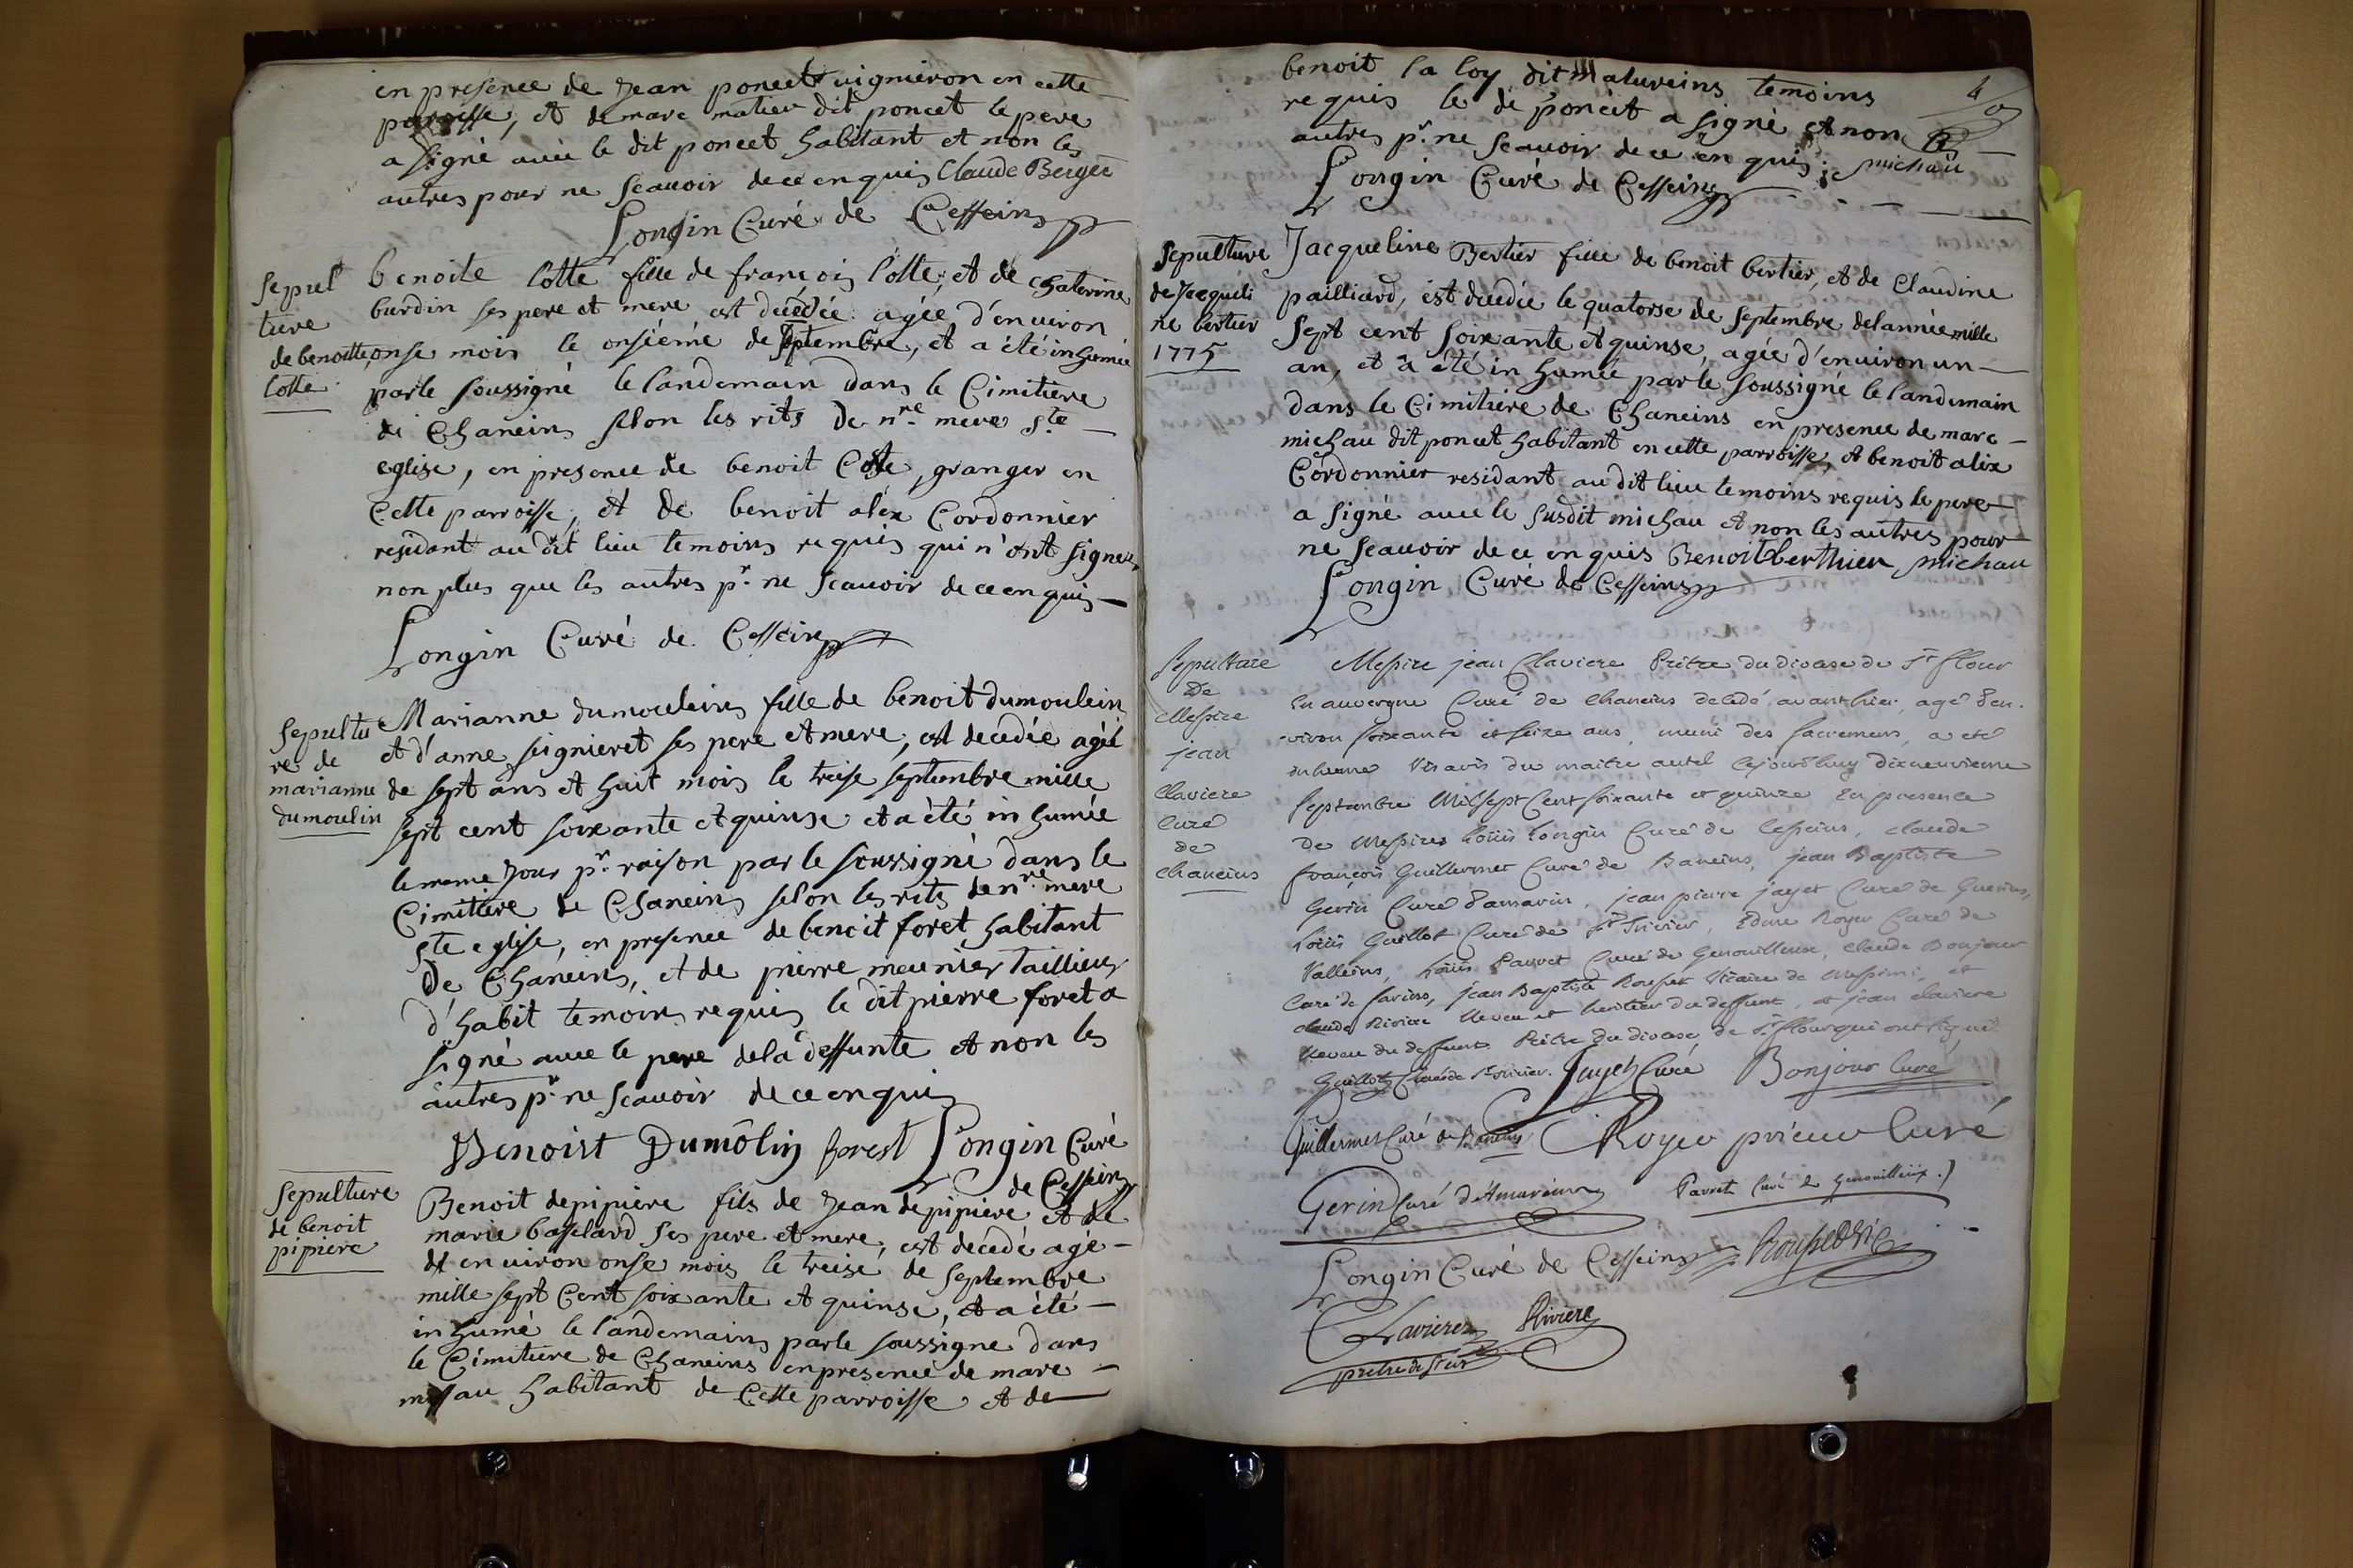 en presence de Jean poncet uignieron en cette
parroisse, et de marc matieu dit poncet le pere
a signé auec le dit poncet habitant et non les
autres pour ne scauoir de ce enquis Claude Berger
Longin Curé de Cesseins
Sepul
ture
de benoitte
lotte
benoite lotte fille de françois lotte, et de chaterine
burdin ses pere et mere est decedée agée d'enuiron
onse mois le onsiéme de septembre, et a été inhumée
par le soussigné le landemain dans le Cimitiere
de Chaneins selon les rits de nre mere ste
eglise, en presence de benoit Cote, granger en
Cette parroisse, et de benoit alix Cordonnier
residant au dit lieu temoins requis qui n'ont signé
non plus que les autres pr ne scauoir de ce enquis
Longin Curé de Cesseins
Sepultu
re de
marianne
dumoulin
Marianne dumouleins fille de benoit dumoulein
et d'anne signieret ses pere et mere, est decedée agée
de sept ans et huit mois le treise septembre mille
sept cent soixante et quinse et a été inhumée
le meme jour pr raison par le soussigné dans le
Cimitiere de Chaneins selon les rits de nre mere
ste eglise, en presence de benoit foret habitant
de Chaneins, et de pierre meunier taillieur
d'habit temoins requis le dit pierre foret a
signé auec le pere de la deffunte et non les
autres pr ne scauoir de ce enquis
Benoist Dumôlin forest Longin Curé
de Cesseins
Sepulture
de benoit
pipiere
Benoit depipiere fils de Jean depipiere et de
marie basselard ses pere et mere, est decedé agé
d'enuiron onse mois le treise de septembre
mille sept Cent soixante et quinse, et a été
inhumé le landemains par le soussigne dans
le Cimitiere de Chaneins en presence de marc
michau habitant de Cette parroisse et de
benoit la loy dit matureins temoins
requis le de poncet a signé et non les
autres pr ne scauoir de ce enquis michau
Longin Curé de Cesseins
Sepulture
de Jacqueli
ne bertier
1775
Jacqueline Bertier fille de benoit bertier, et de Claudine
pailliard, est decedée le quatorse de septembre de l'année mille
sept cent soixante et quinse, agée d'enuiron un
an, et a été inhumée par le soussigné le landemain
dans le Cimitiere de Chaneins en presence de marc
michau dit poncet habitant en cette parroisse, et benoit alix
Cordonnier residant au dit lieu temoins requis le pere
a signé auec le susdit michau et non les autres pour
ne scauoir de ce enquis Benoit berthier michau
Longin Curé de Cesseins
Sepulture
De
Messire
jean
Claviere
Curé
de
chaneins
Messire jean Claviere Prêtre du diocese de St flour
En auvergne Curé de Chaneins decedé avant hier agé d'en
viron soixante et seize ans, muni des sacremens, a eté
inhumé vis avis du maitre autel cejourdhuy dixneuvieme
Septembre Mil sept Cent soixante et quinze En presence
de Messires Loüis Longin Curé de Cesseins, claude
françois Guillermet Curé de Baneins, jean Baptiste
Gerin Curé d'amarin, jean pierre jayet Curé de Guereins,
Loüis Guillot Curé de St Trivier, Edme Royer Curé de
Valleins, Loüis Pauvet Curé de Genouilleux, claude Bonjour
Curé de saviens, jean Baptiste Rousset Vicaire de Messimi et
claude Riviere Neveu et heritier du deffunt, et jean claviere
Neveu du deffunt Prêtre du diocese de St flour qui ont signé
Guillot Curé de St trivier. Jayet Curé Bonjour Curé
Guillermet Curé de Baneins Royer prieur Curé
Gerin Curé d'Amareins Pauvet Curé de genouilleux
Longin Curé de Cesseins Rousset vic
Claviere Riviere